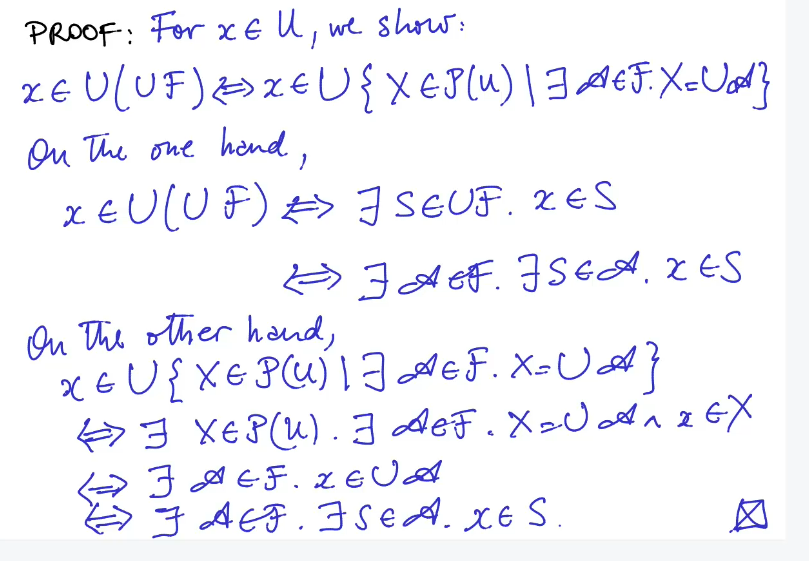 PROOF: For x ∈ U, we show:
x ∈ ⋃(⋃F) ⇔ x ∈ ⋃{ X ∈ P(U) | ∃ A ∈ F. X = ⋃A }
On the one hand,
x ∈ ⋃(⋃F) ⇔ ∃ S ∈ ⋃F. x ∈ S
⇔ ∃ A ∈ F. ∃ S ∈ A. x ∈ S
On the other hand,
x ∈ ⋃{ X ∈ P(U) | ∃ A ∈ F. X = ⋃A }
⇔ ∃ X ∈ P(U). ∃ A ∈ F. X = ⋃A ∧ x ∈ X
⇔ ∃ A ∈ F. x ∈ ⋃A
⇔ ∃ A ∈ F. ∃ S ∈ A. x ∈ S. ⊠